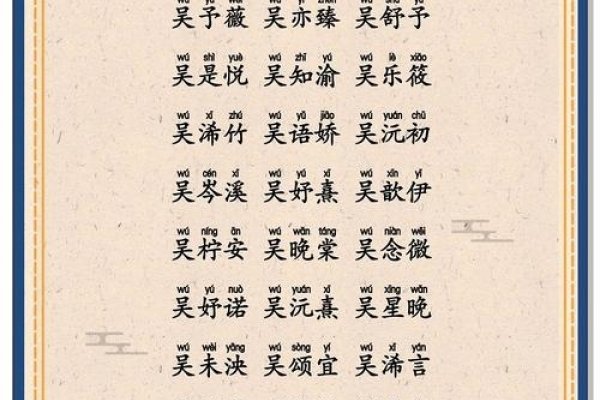 wú yú wēi wú yì zhēn wú shū yú
吴予薇 吴亦臻 吴舒予
wú shì yuè wú zhī yú wú lè xiǎo
吴是悦 吴知渝 吴乐筱
wú xī zhú wú yǔ jiāo wú yuán chū
吴浠竹 吴语娇 吴沅初
wú cén xī wú yú xī wú xīn yī
吴岑溪 吴妤熹 吴歆伊
wú níng ān wú wǎn táng wú niàn wēi
吴柠安 吴晚棠 吴念微
wú yú nuò wú yuán xī wú xīng wǎn
吴妤诺 吴沅熹 吴星晚
wú wèi yāng wú sòng yí wú xī yán
吴未泱 吴颂宜 吴浠言